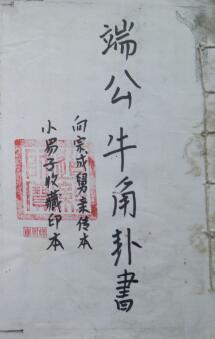 端公牛角卦書
向宗成舅亲传本
小易子收藏印本